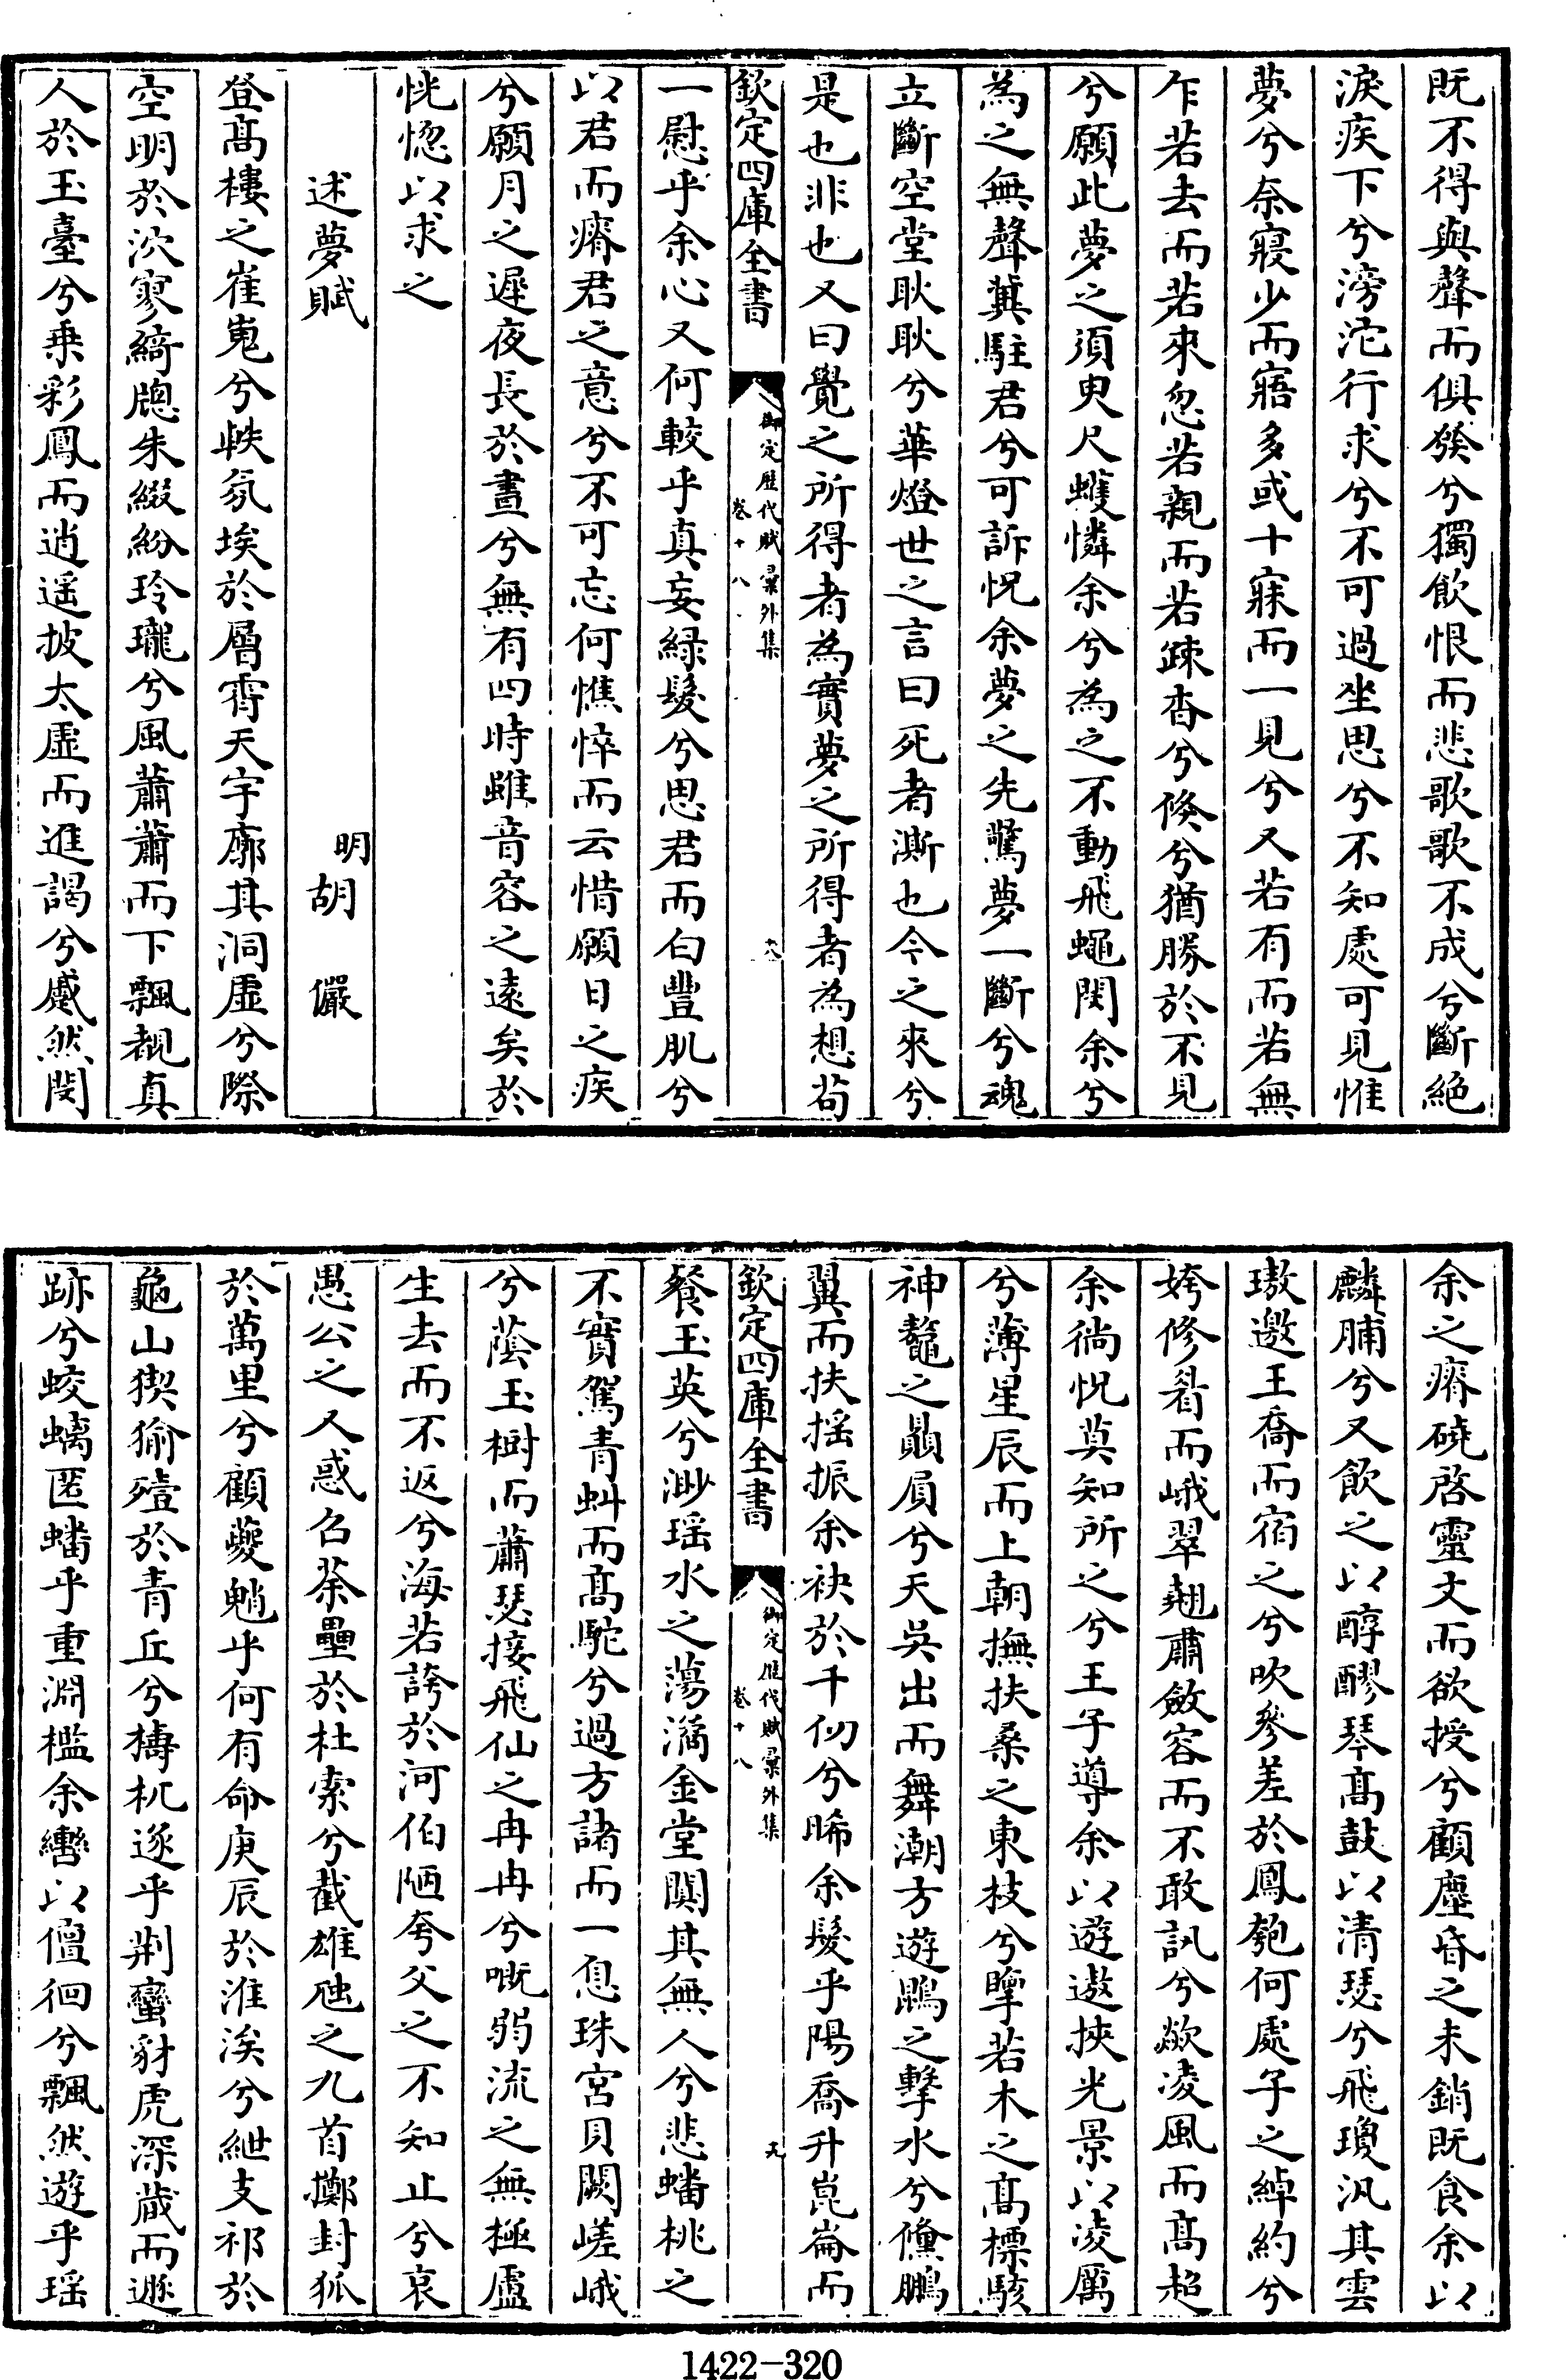 既不得與聲而俱發兮獨飲恨而悲歌歌不成兮斷絕
淚疾下兮滂沱行求兮不可過坐思兮不知處可見惟
夢兮奈寢少而寤多或十寐而一見兮又若有而若無
乍若去而若來忽若親而若疎杳兮倏兮猶勝於不見
兮願此夢之須臾尺蠖憐余兮為之不動飛蠅閔余兮
為之無聲冀駐君兮可訴怳余夢之先驚夢一斷兮魂
立斷空堂耿耿兮華燈世之言曰死者澌也今之來兮
是也非也又曰覺之所得者為實夢之所得者為想苟
欽定四庫全書
御定歷代賦彙外集
卷十八
十八
一慰乎余心又何較乎真妄綠髮兮思君而白豐肌兮
以君而瘠君之意兮不可忘何憔悴而云惜願日之疾
兮願月之遲夜長於晝兮無有四時雖音容之遠矣於
恍惚以求之
述夢賦
明胡儼
登髙樓之崔嵬兮軼氛埃於層霄天宇廓其洞虛兮際
空明於泬寥綺牕朱綴紛玲瓏兮風蕭蕭而下飄覩真
人於玉臺兮乗彩鳳而逍遥披太虛而進謁兮慼然閔
余之瘠硗啓靈文而欲授兮顧塵昏之未銷既食余以
麟脯兮又飲之以醇醪琴髙鼓以清瑟兮飛瓊汎其雲
璈邀王喬而宿之兮吹參差於鳳匏何處子之綽約兮
姱修眉而峨翠翹肅斂容而不敢訊兮歘凌風而髙超
余徜怳莫知所之兮王子導余以遊遨挾光景以凌厲
兮薄星辰而上朝撫扶桑之東枝兮擥若木之髙標駭
神鼇之贔屓兮天吳出而舞潮方遊鵾之擊水兮儻鵬
翼而扶搖振余袂於千仞兮晞余髮乎陽喬升崑崙而
欽定四庫全書
御定歷代賦彙外集
卷十八
十九
餐玉英兮渺瑶水之蕩潏金堂闃其無人兮悲蟠桃之
不實駕青虯而髙駝兮過方諸而一息珠宮貝闕嵯峨
兮蔭玉樹而蕭瑟接飛仙之冉冉兮嘅弱流之無極盧
生去而不返兮海若誇於河伯陋夸父之不知止兮哀
愚公之人惑召荼壘於杜索兮截雄虺之九首擲封狐
於萬里兮顧夔魈乎何有命庚辰於淮涘兮紲支祁於
龜山猰㺄殪於青丘兮檮杌逐乎荆蠻豺虎深蔵而遯
跡兮蛟螭匿蟠乎重淵檻余轡以儃徊兮飄然遊乎瑶
1422-320